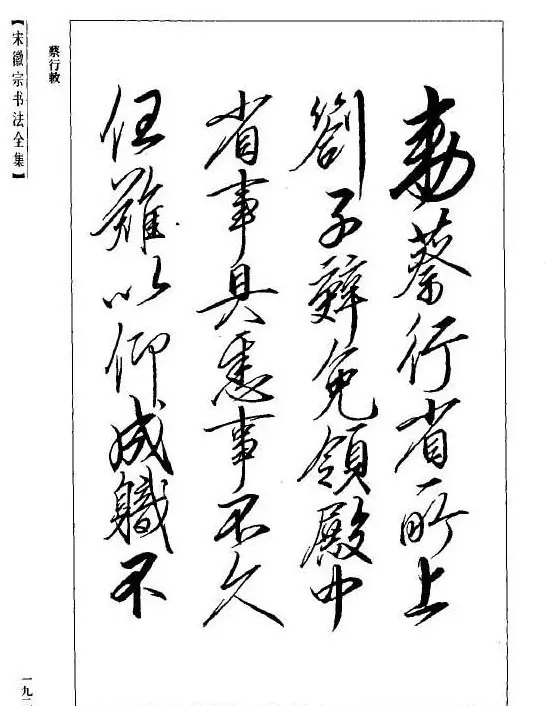 【宋徽宗书法全集】
蔡行敕
敕蔡行省所上
劄子辭免領殿中
省事具悉事不久
任難以仰成職不